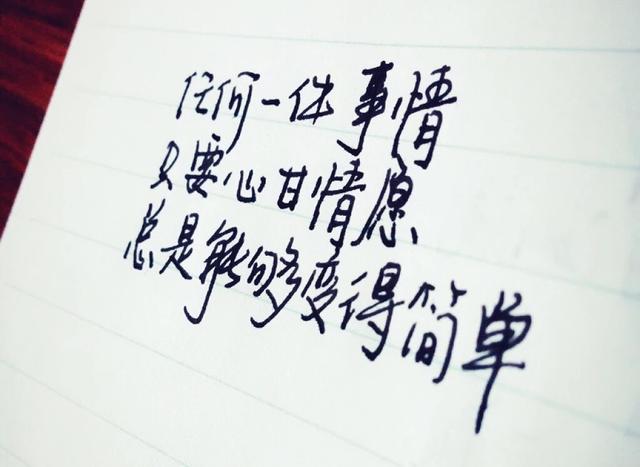 任何一件事情
只要心甘情愿
总是能够变得简单